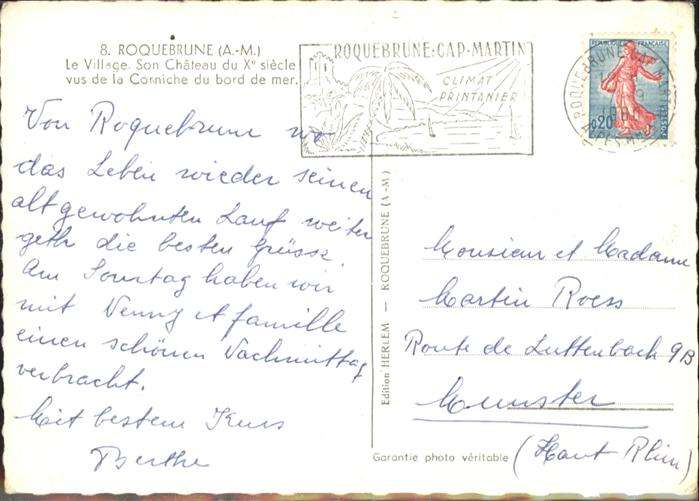 8. ROQUEBRUNE (A.-M.)
Le Village. Son Château du Xᵉ siècle
vus de la Corniche du bord de mer.
ROQUEBRUNE-CAP-MARTIN
CLIMAT
PRINTANIER
REPUBLIQUE FRANÇAISE
0,20
POSTES
Von Roquebrune wo
das Leben wieder seinen
altgewohnten Lauf weiter
geht die besten Grüsse.
Am Sonntag haben wir
mit Nenny et famille
einen schönen Nachmittag
verbracht.
Mit bestem Kuss
Berthe
Edition HERLEM — ROQUEBRUNE (A.-M.)
Monsieur et Madame
Martin Roess
Route de Luttenbach 9B
Munster
(Haut Rhin)
Garantie photo véritable